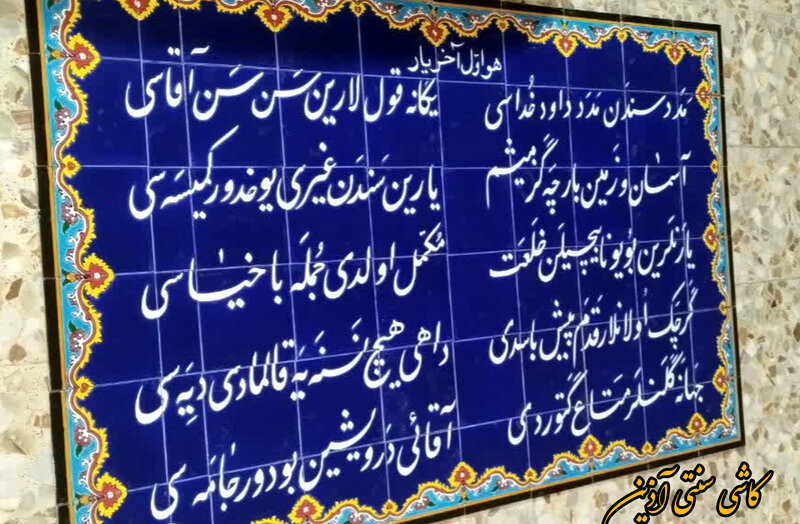 هو اول آخر یار
مدد سندن مدد داود خداسی
یگانه قول لارین سن سن آقاسی
آسمان و زمین بارچه گزمیشم
یارین سندن غیری یوخدور کیمسه سی
یارنلرین بویونا بیچیلن خلعت
مکمل اولدی جمله باخیاسی
گرچک اولانلار قدم پیش باسدی
داهی هیچ نسنه یه قالمادی دیه سی
جهانه گلنلر متاع گتوردی
آقائی درویشین بودور جامه سی
کاشی سنتی آذین